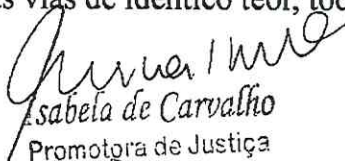 vias de idêntico teor,
Isabela de Carvalho
Promotora de Justiça